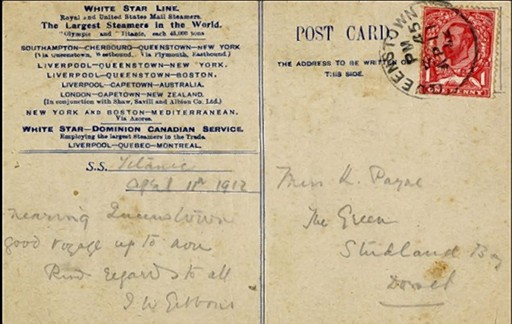 WHITE STAR LINE.
Royal and United States Mail Steamers.
The Largest Steamers in the World.
"Olympic and Titanic, each 45,000 tons
SOUTHAMPTON-CHERBOURG-QUEENSTOWN-NEW YORK
(Via Queenstown, Westbound. Via Plymouth, Eastbound.)
LIVERPOOL-QUEENSTOWN-NEW YORK.
LIVERPOOL-QUEENSTOWN-BOSTON.
LIVERPOOL-CAPETOWN-AUSTRALIA.
LONDON-CAPETOWN-NEW ZEALAND.
(In conjunction with Shaw, Savill and Albion Co. Ltd.)
NEW YORK AND BOSTON-MEDITERRANEAN.
Via Azores.
WHITE STAR-DOMINION CANADIAN SERVICE.
Employing the largest Steamers in the Trade.
LIVERPOOL-QUEBEC-MONTREAL.
S.S. Titanic
April 11th 1912
nearing Queenstown
good voyage up to now
Kind regards to all
J W Gibbons
POST CARD
THE ADDRESS TO BE WRITTEN ON
THIS SIDE.
QUEENSTOWN
Miss K. Payne
The Green
Studland Bay
Dorset